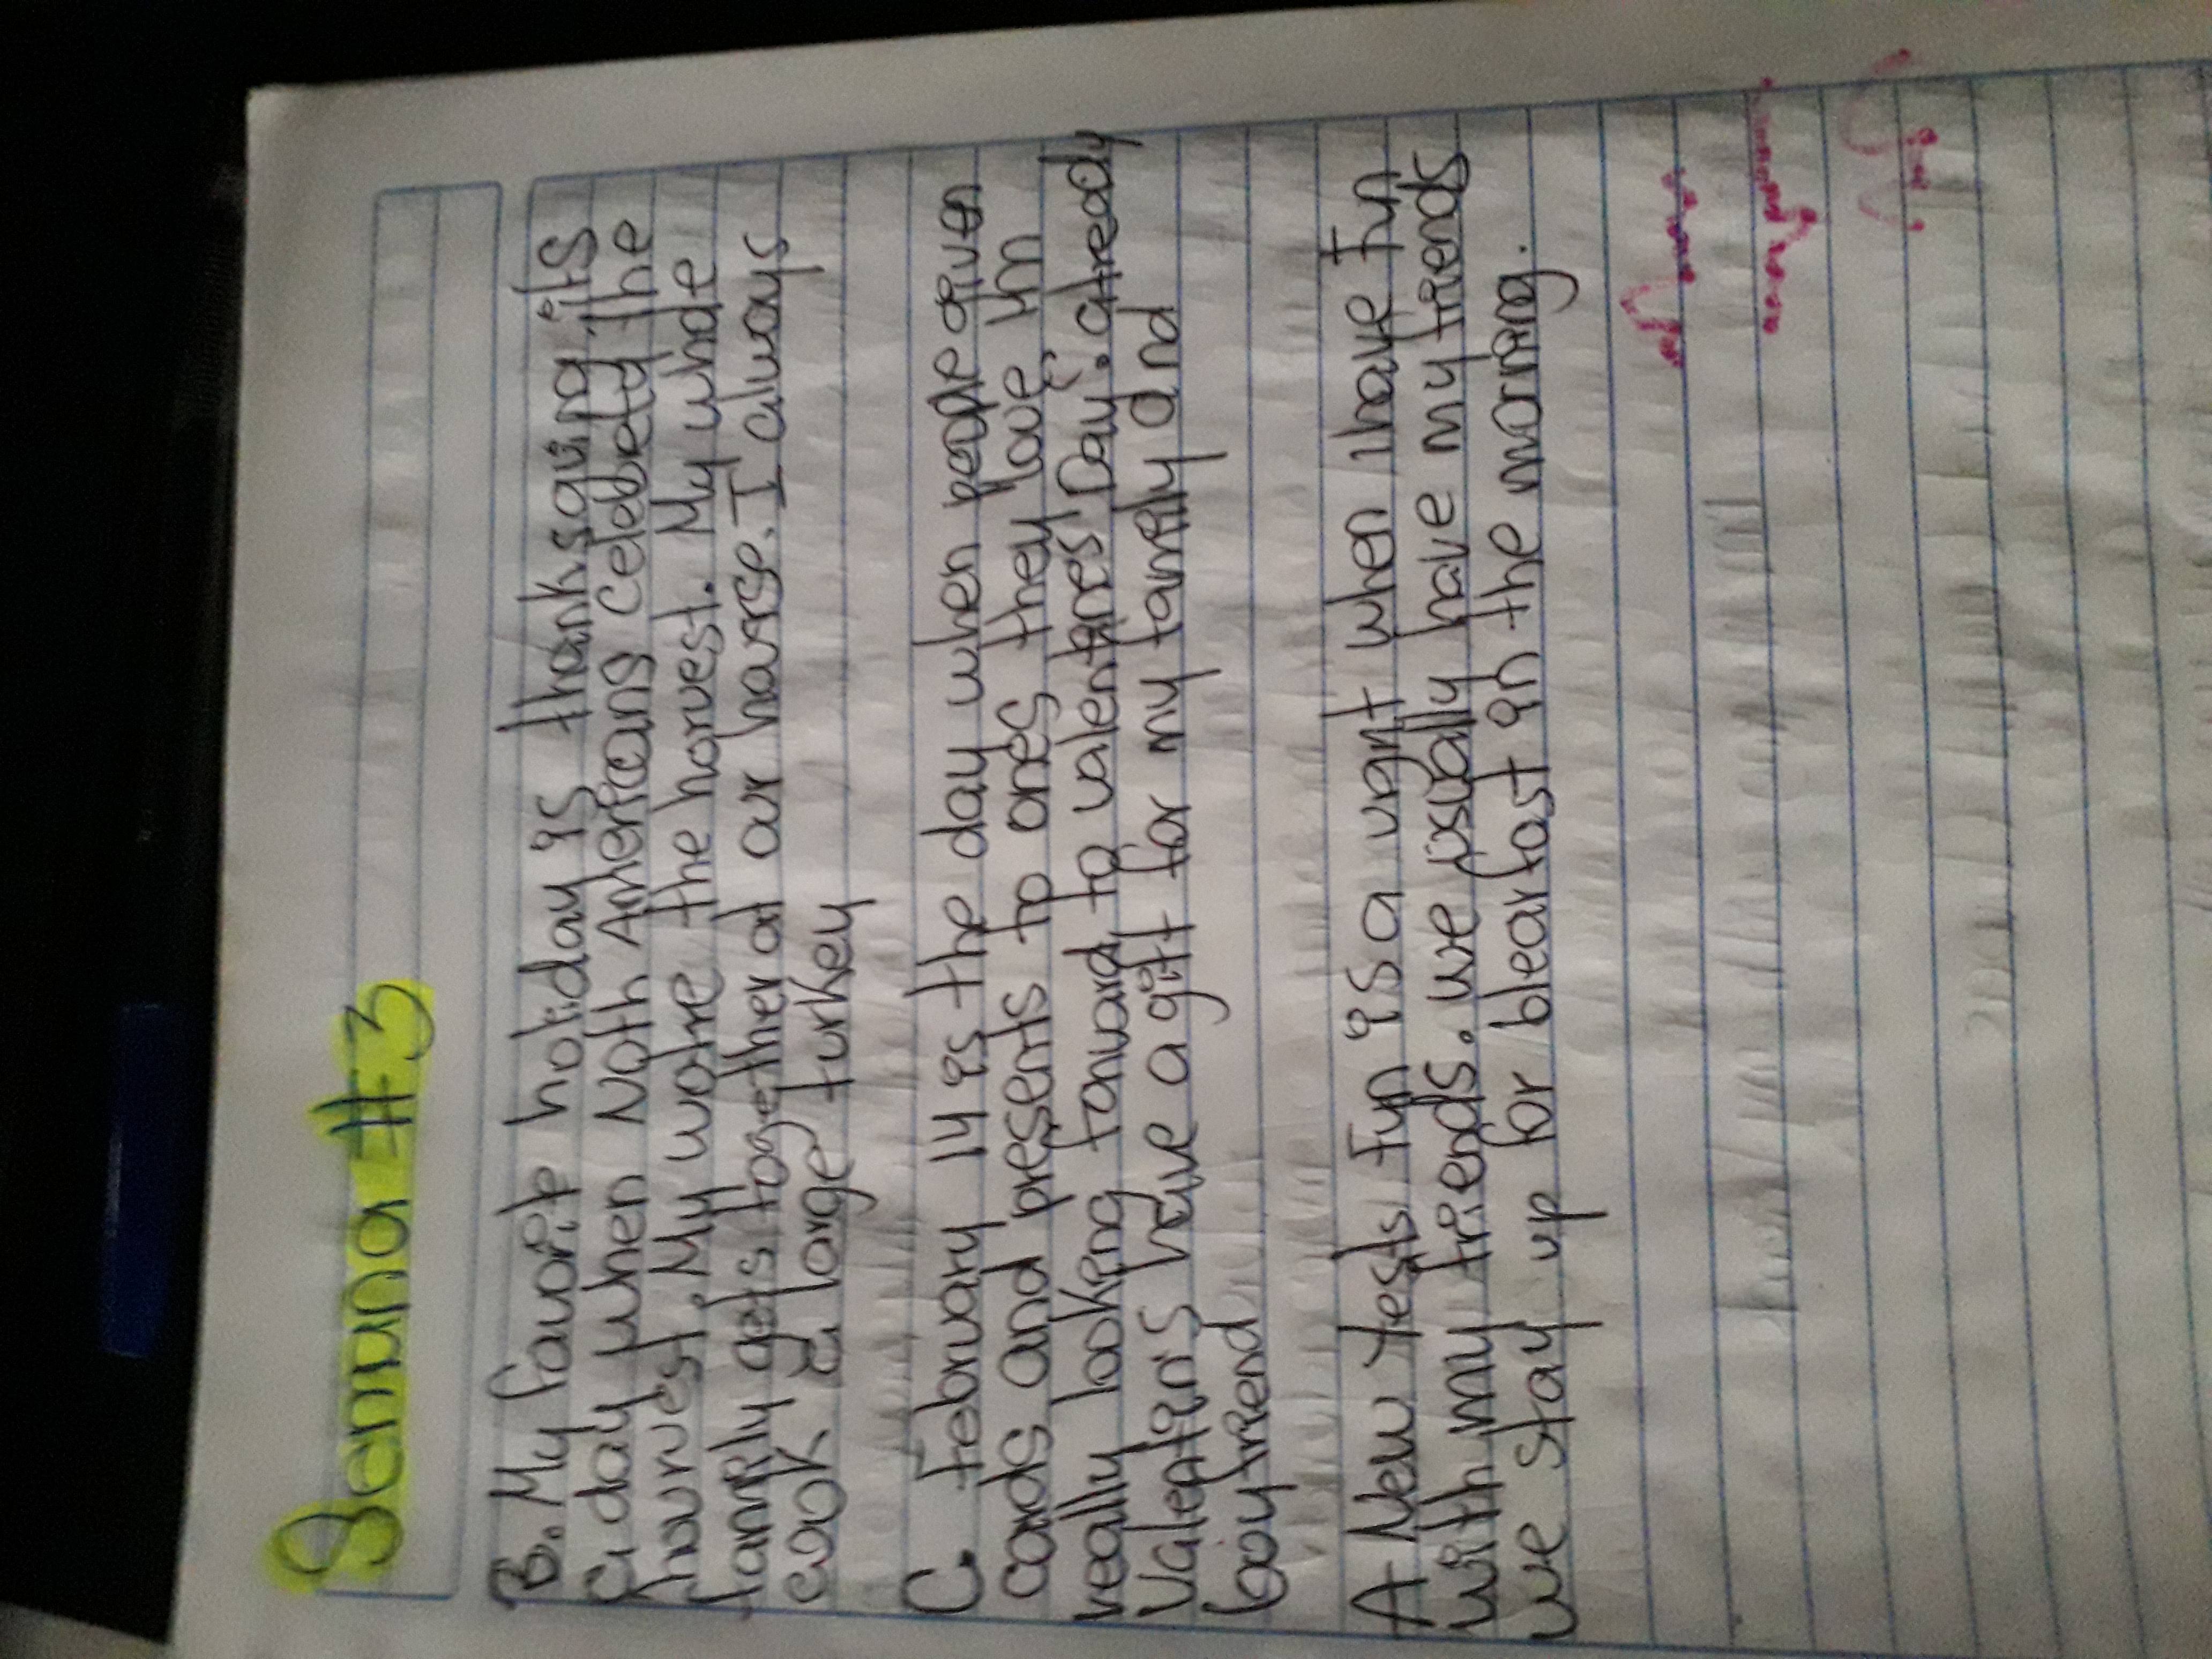 Semana #3
B. My favorite holiday is thanksgiving. its
a day when Noth Americans celebeta the
harvest. My wohe the horvest. My whole
family gets together at our house. I always
cook a large turkey
C. february 14 is the day when people given
cards and presents to ones they love ym
really looking forward to valentines Day. already
Valentin's have a gift for my family and
booyfriend
A New Yests fun is a vght when I have fun
with my friends. we usually have my friends
we stay up for blearfast in the morning.